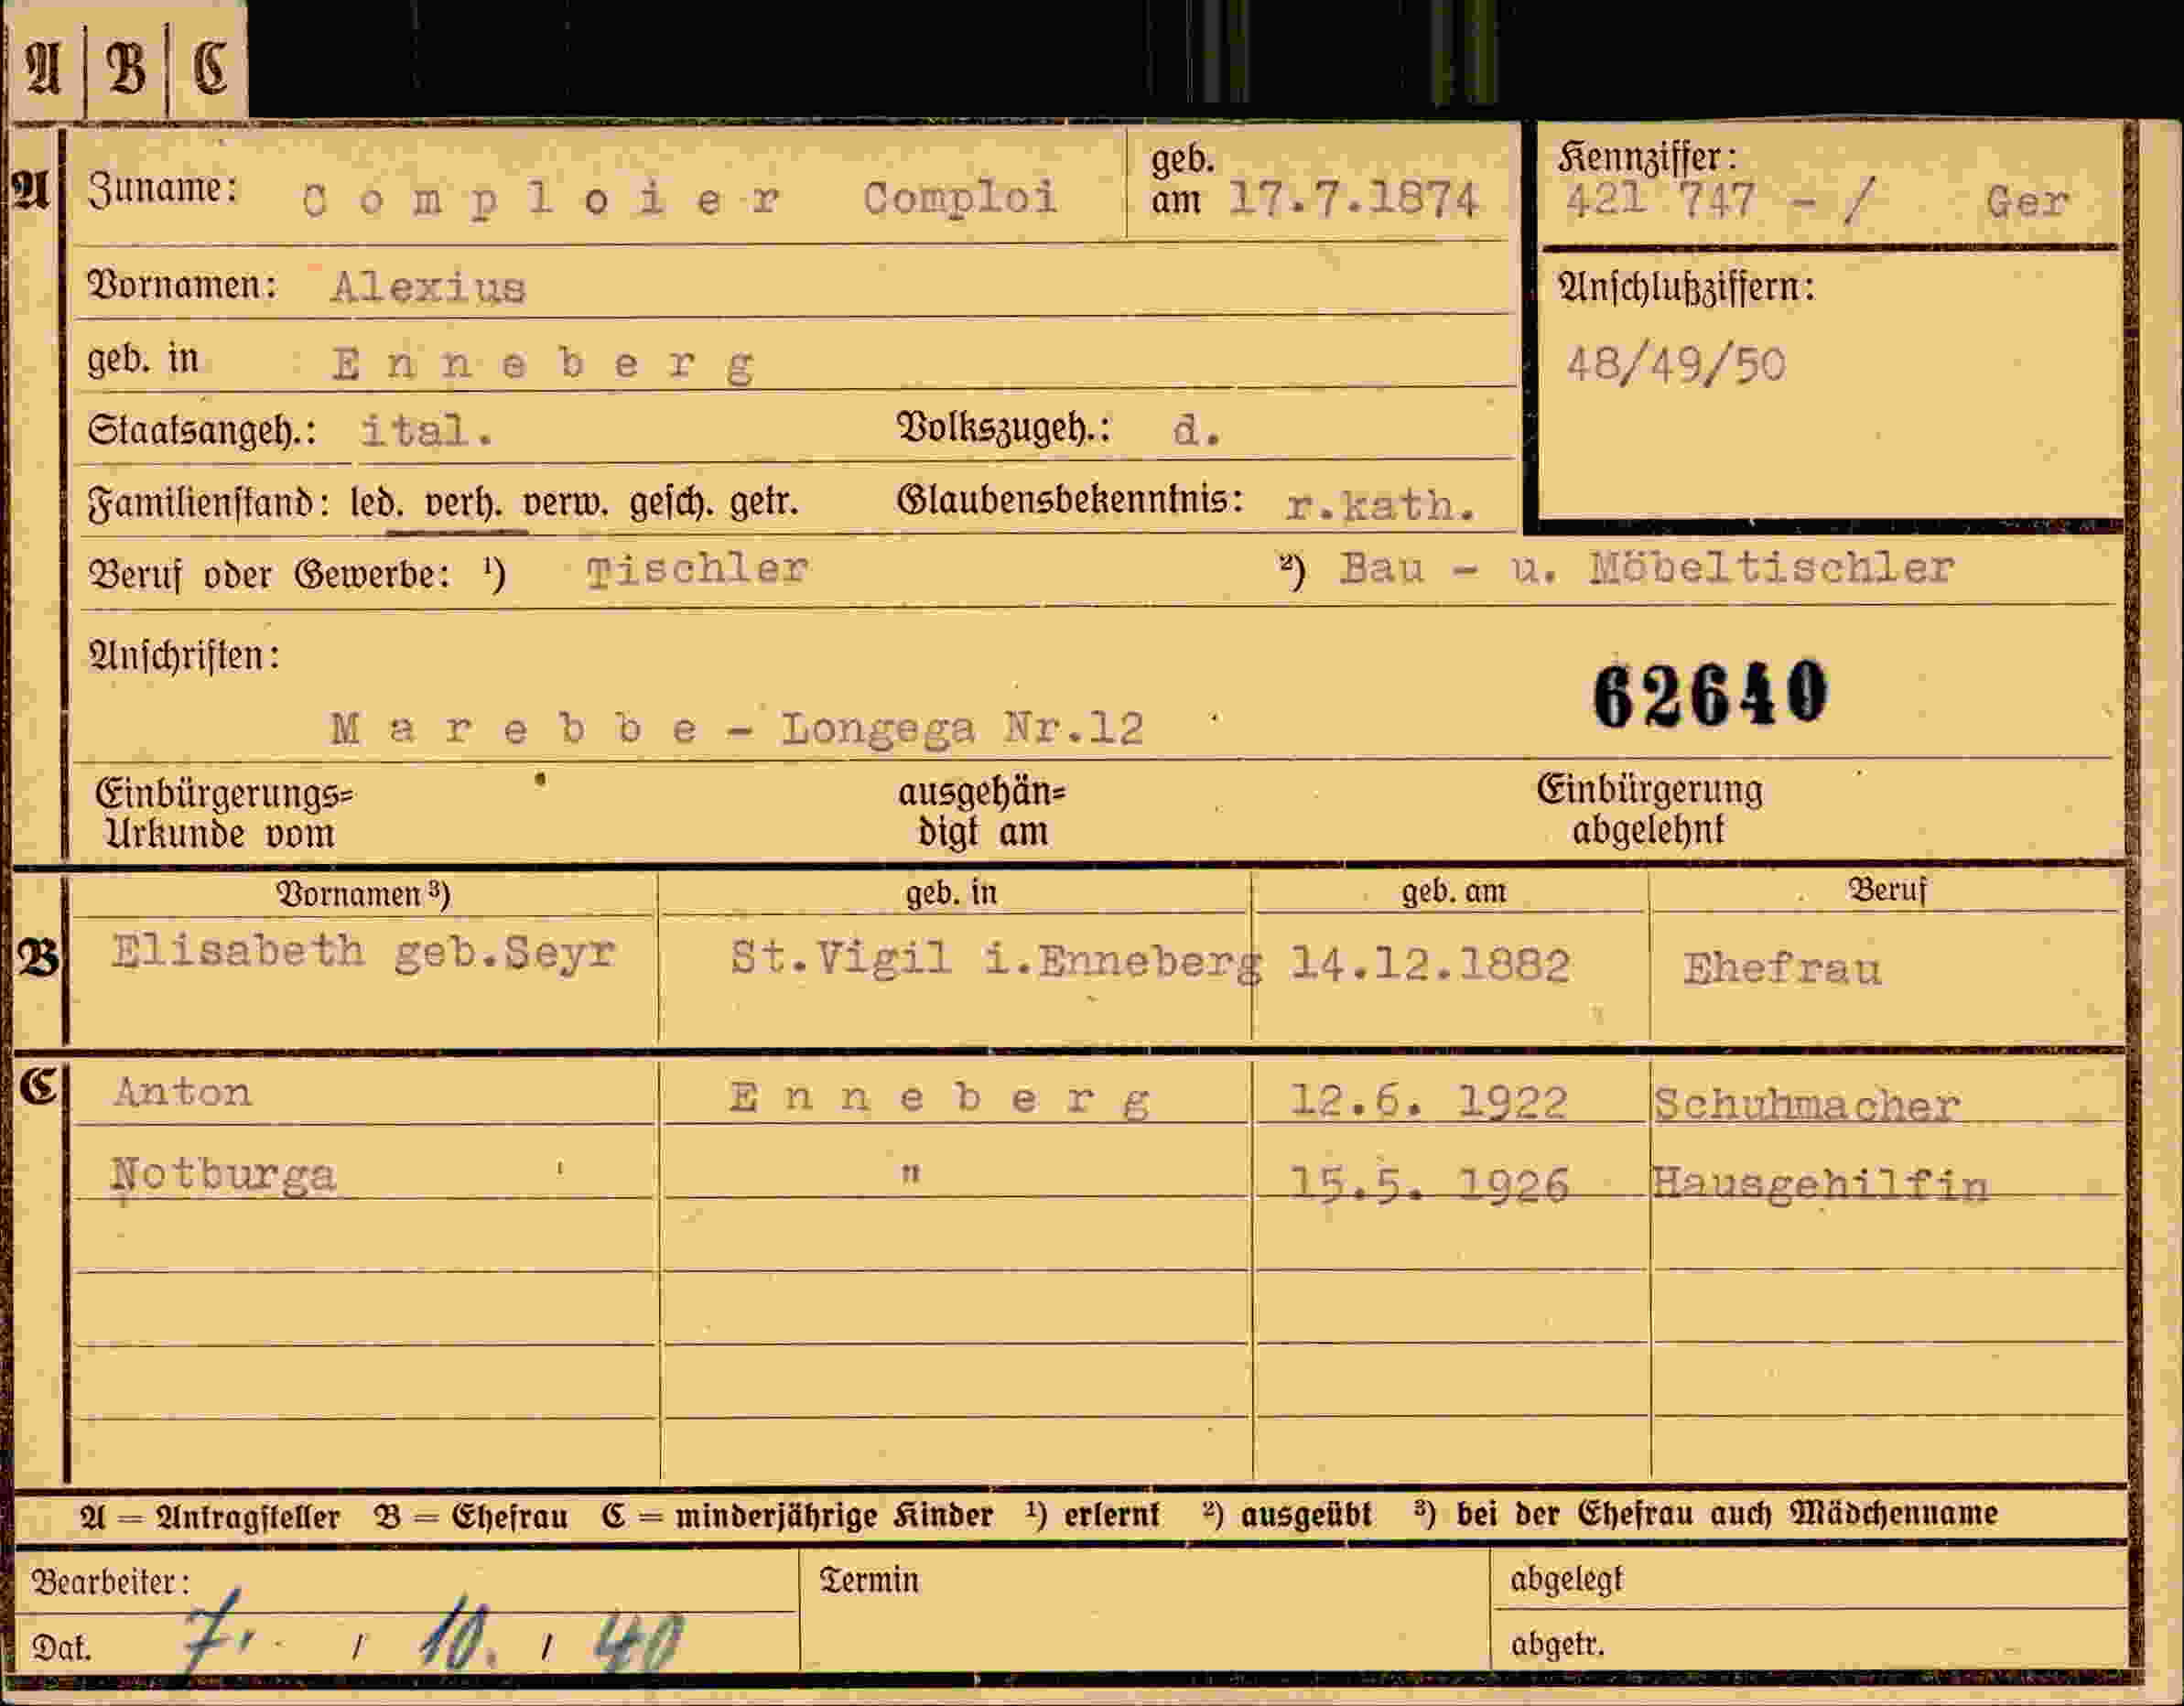 A | B | C
A Zuname: Comploier Comploi geb. am 17.7.1874
Kennziffer: 421 747 - / Ger
Vornamen: Alexius
Anschlußziffern:
geb. in Enneberg
48/49/50
Staatsangeh.: ital. Volkszugeh.: d.
Familienstand: led. verh. verw. gesch. getr. Glaubensbekenntnis: r.kath.
Beruf oder Gewerbe: ¹) Tischler ²) Bau - u. Möbeltischler
Anschriften:
62640
Marebbe - Longega Nr.12
Einbürgerungs= ausgehän= Einbürgerung
Urkunde vom digt am abgelehnt
Vornamen ³) geb. in geb. am Beruf
B Elisabeth geb.Seyr St.Vigil i.Enneberg 14.12.1882 Ehefrau
C Anton Enneberg 12.6. 1922 Schuhmacher
Notburga " 15.5. 1926 Hausgehilfin
A = Antragsteller B = Ehefrau C = minderjährige Kinder ¹) erlernt ²) ausgeübt ³) bei der Ehefrau auch Mädchenname
Bearbeiter: Termin abgelegt
Dat. 7. / 10. / 40 abgetr.